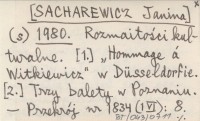 [SACHAREWICZ Janina] x
(s) 1980. Rozmaitości kul-
turalne. [1.] „Hommage à
Witkiewicz" w Düsseldorfie.
[2.] Trzy balety w Poznaniu.
— Przekrój nr 1834 (1 VI): 8.